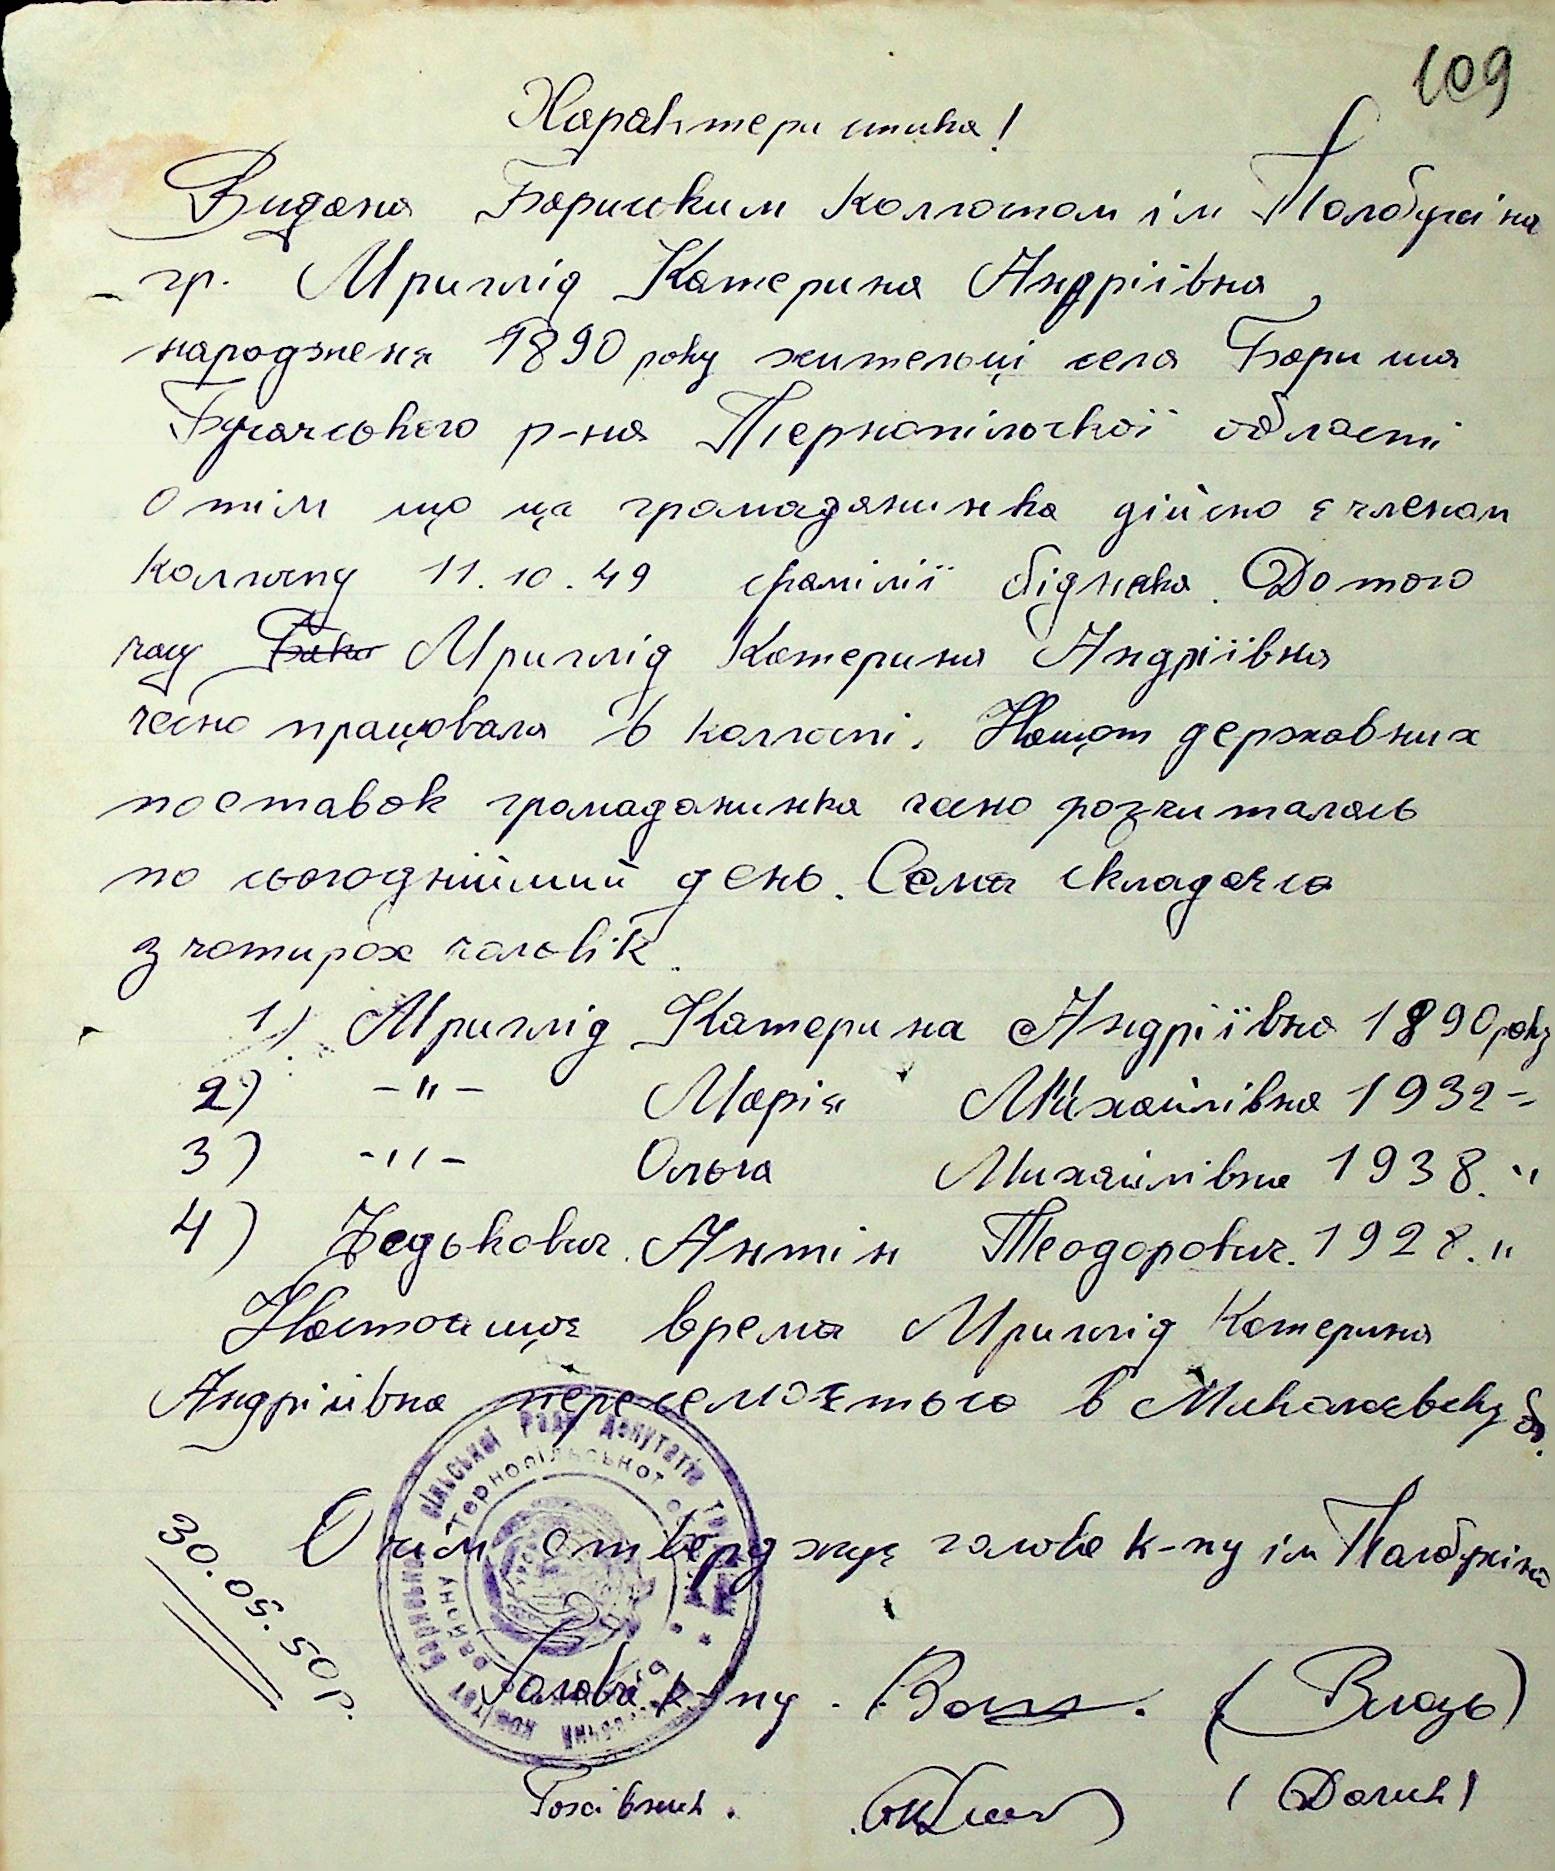 109
Характеристика!
Видана Баришським Колгоспом ім Толбухіна
гр. Мриглід Катерина Андріївна,
народженя 1890 року жительці села Бариша
Бучачського р-на Тернопільської області
о тім що ця громадянинка дійсно є членом
колгоспу 11.10.49 фамілії бідняка. До того
часу Мриглід Катерина Андріївна
чесно працювала в колгоспі. Нащот державних
поставок громадянинка чесно розчиталась
по сьогоднійший день. Семя складаєся
з чотирох чоловік.
1) Мриглід Катерина Андріївна 1890 року
2) -"- Марія Михайлівна 1932 -"
3) -"- Ольга Михайлівна 1938. "
4) Федькович. Антін Теодорович. 1928. "
Настоящоє время Мриглід Катерина
Андріївна переселюється в Миколаєвску об.
О чім стверджує голова к-пу ім Толбухіна
30.05.50 р.
Голова к-пу. (Влазь)
Тернопільської
район
(Долик)